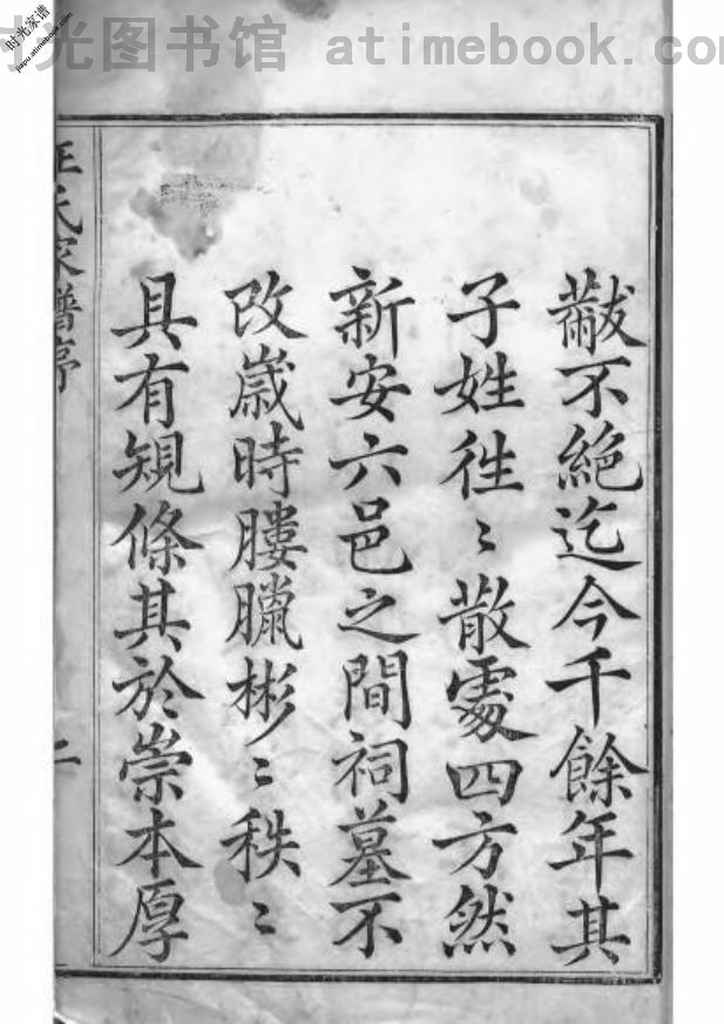 时光图书馆 atimebook.com
时光家谱
jiapu.atimebook.com
黻不絶迄今千餘年其
子姓徃〻散處四方然
新安六邑之間祠墓不
改嵗時膢臘彬〻秩〻
具有規條其於崇本厚
氏家譜序
二